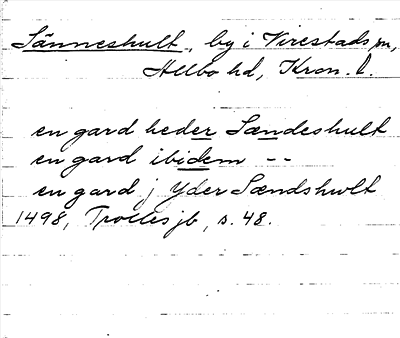 Sänneshult, by i Virestads sn,
Allbo hd, Kron. l.
en gard heder Sændeshult
en gard ibidem - -
en gard j Yder Sændshwlt
1498, Trolles jb, s. 48.